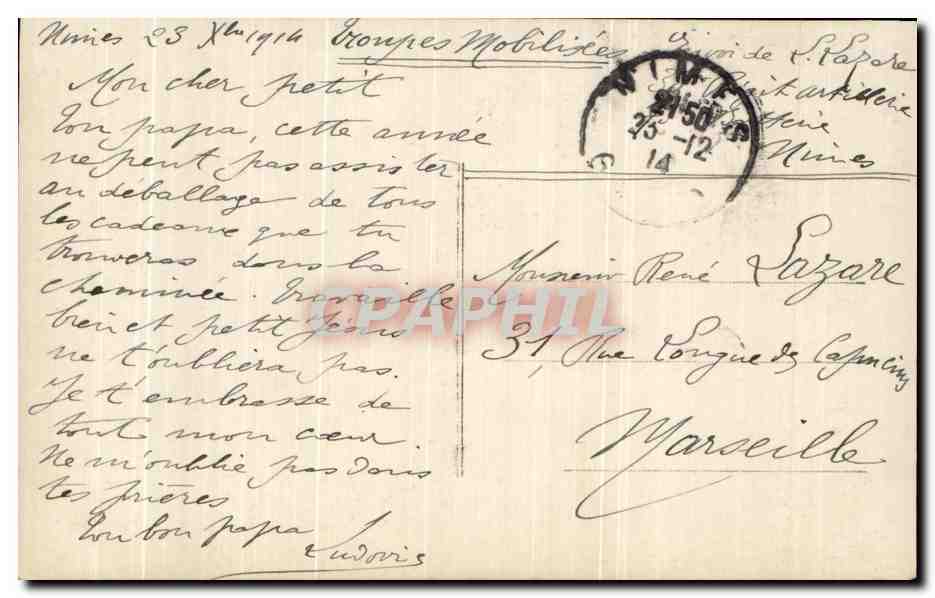 Nimes 23 Xbre 1914 Troupes Mobilisées
Envoi de L. Lazare
artillerie
Nimes
NIMES
21 50
23 -12
14
Mon cher petit
Ton papa, cette année
ne peut pas assister
au déballage de tous
les cadeaux que tu
trouveras dans la
cheminée. Travaille
bien et petit Jésus
ne t'oubliera pas.
Je t'embrasse de
tout mon cœur.
Ne m'oublie pas dans
tes prières
Ton bon papa
Ludovic
Monsieur René Lazare
31, Rue Longue des Capucins
Marseille
CPAPHIL